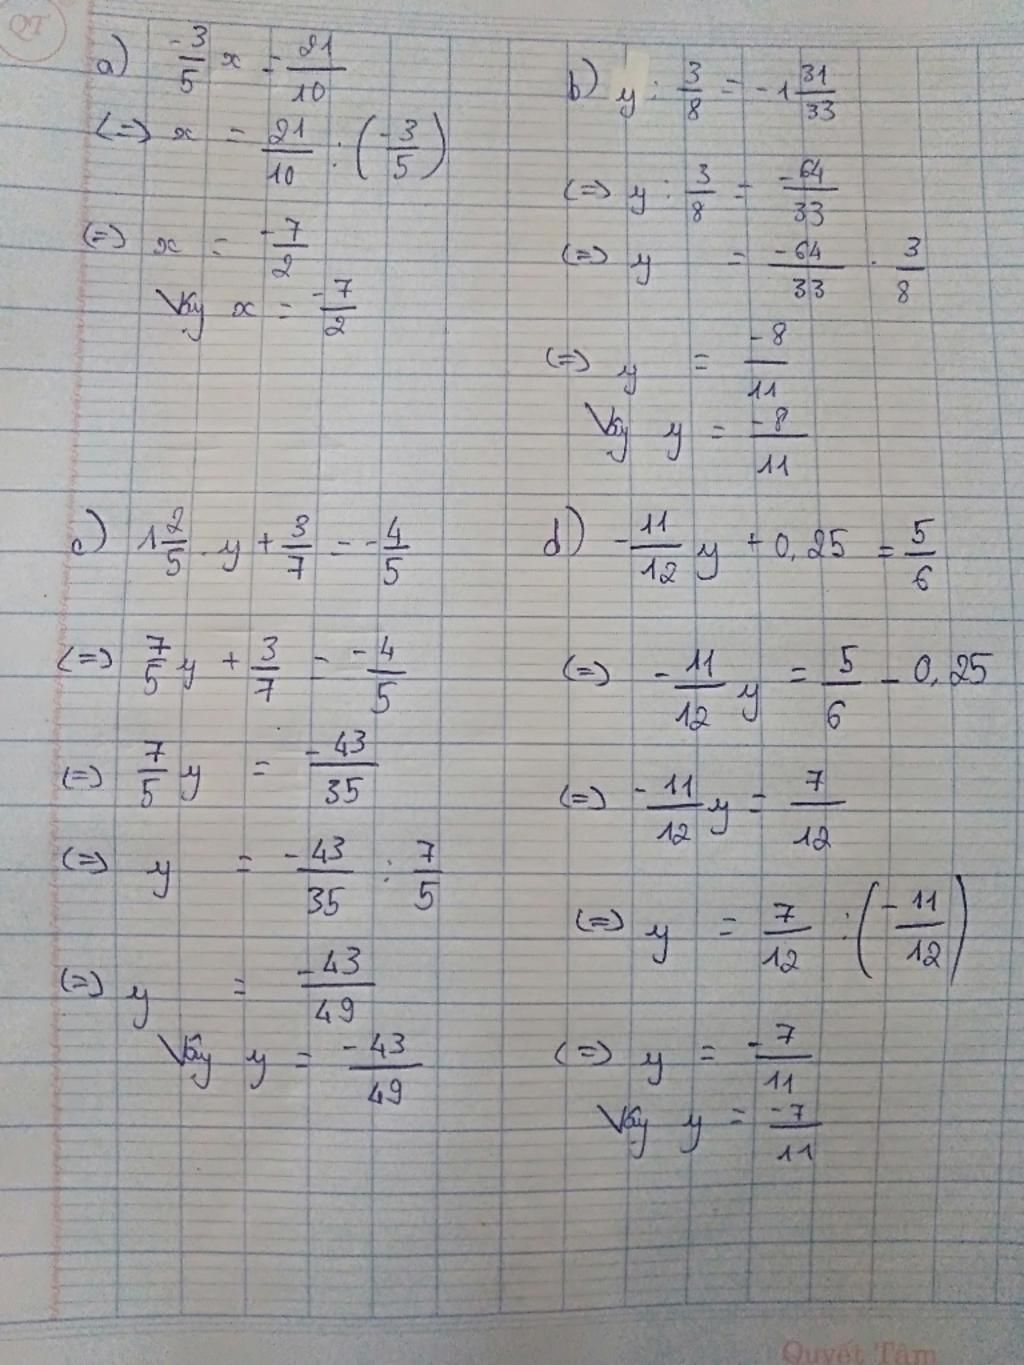 QT
a) -3/5 x = 21/10
(=) x = 21/10 : (-3/5)
(=) x = -7/2
Vậy x = -7/2
b) y : 3/8 = -1 31/33
(=) y : 3/8 = -64/33
(=) y = -64/33 . 3/8
(=) y = -8/11
Vậy y = -8/11
c) 1 2/5 . y + 3/7 = -4/5
(=) 7/5 y + 3/7 = -4/5
(=) 7/5 y = -43/35
(=) y = -43/35 : 7/5
(=) y = -43/49
Vậy y = -43/49
d) -11/12 y + 0,25 = 5/6
(=) -11/12 y = 5/6 - 0,25
(=) -11/12 y = 7/12
(=) y = 7/12 : (-11/12)
(=) y = -7/11
Vậy y = -7/11
Quyết Tâm